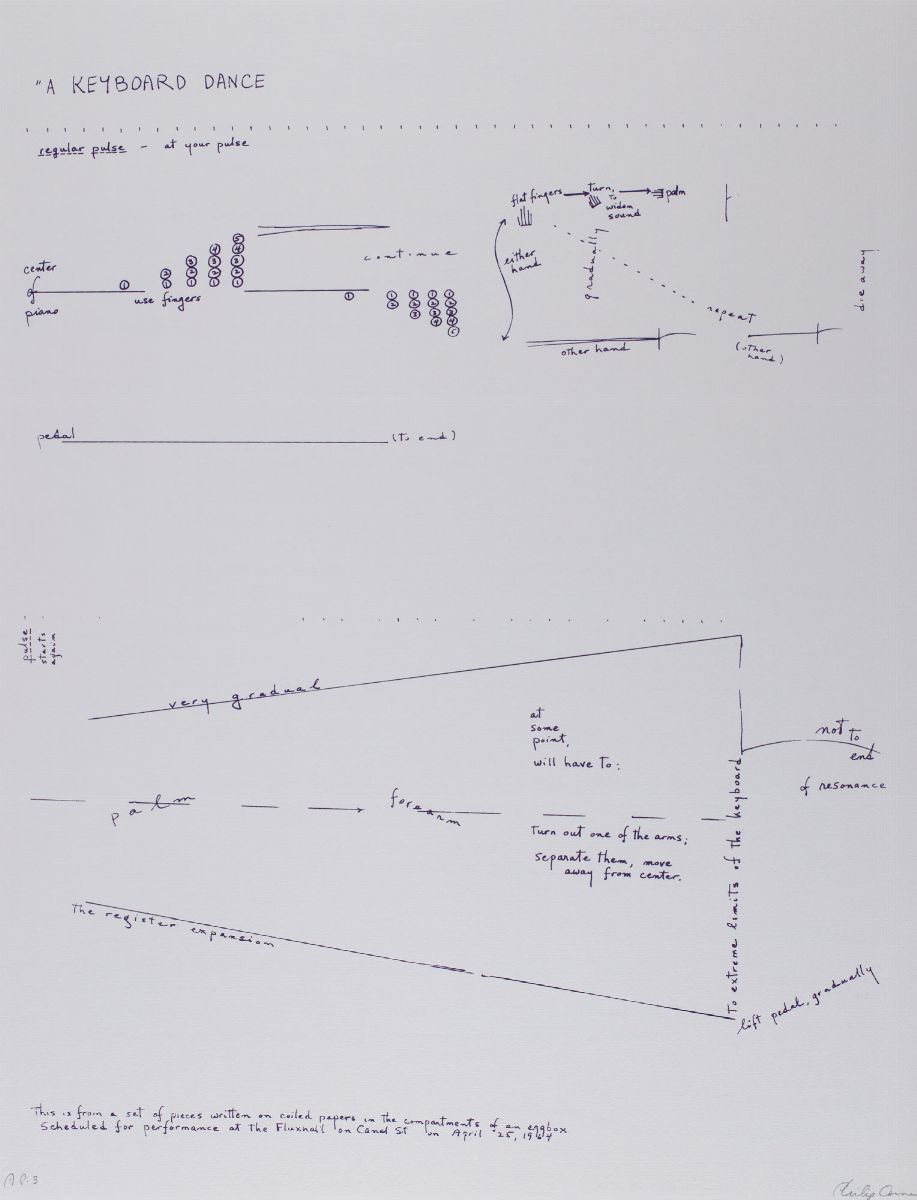 "A KEYBOARD DANCE
regular pulse - at your pulse
flat fingers turn, palm
to
widen
sound
center
of
piano
1
2
1
3
2
1
4
3
2
1
5
4
3
2
1
use fingers
continue
1
1
2
1
2
3
1
2
3
4
1
2
3
4
5
either
hand
gradually
repeat
other hand
(other
hand)
die away
pedal (to end)
pulse
starts
again
very gradual
at
some
point,
will have to:
not to
end
of resonance
palm
forearm
Turn out one of the arms;
separate them, move
away from center.
The register expansion
To extreme limits of the keyboard
lift pedal, gradually
This is from a set of pieces written on coiled papers in the compartments of an eggbox
Scheduled for performance at the Fluxhall on Canal St on April 25, 1964
A.P. 3
Philip Corner